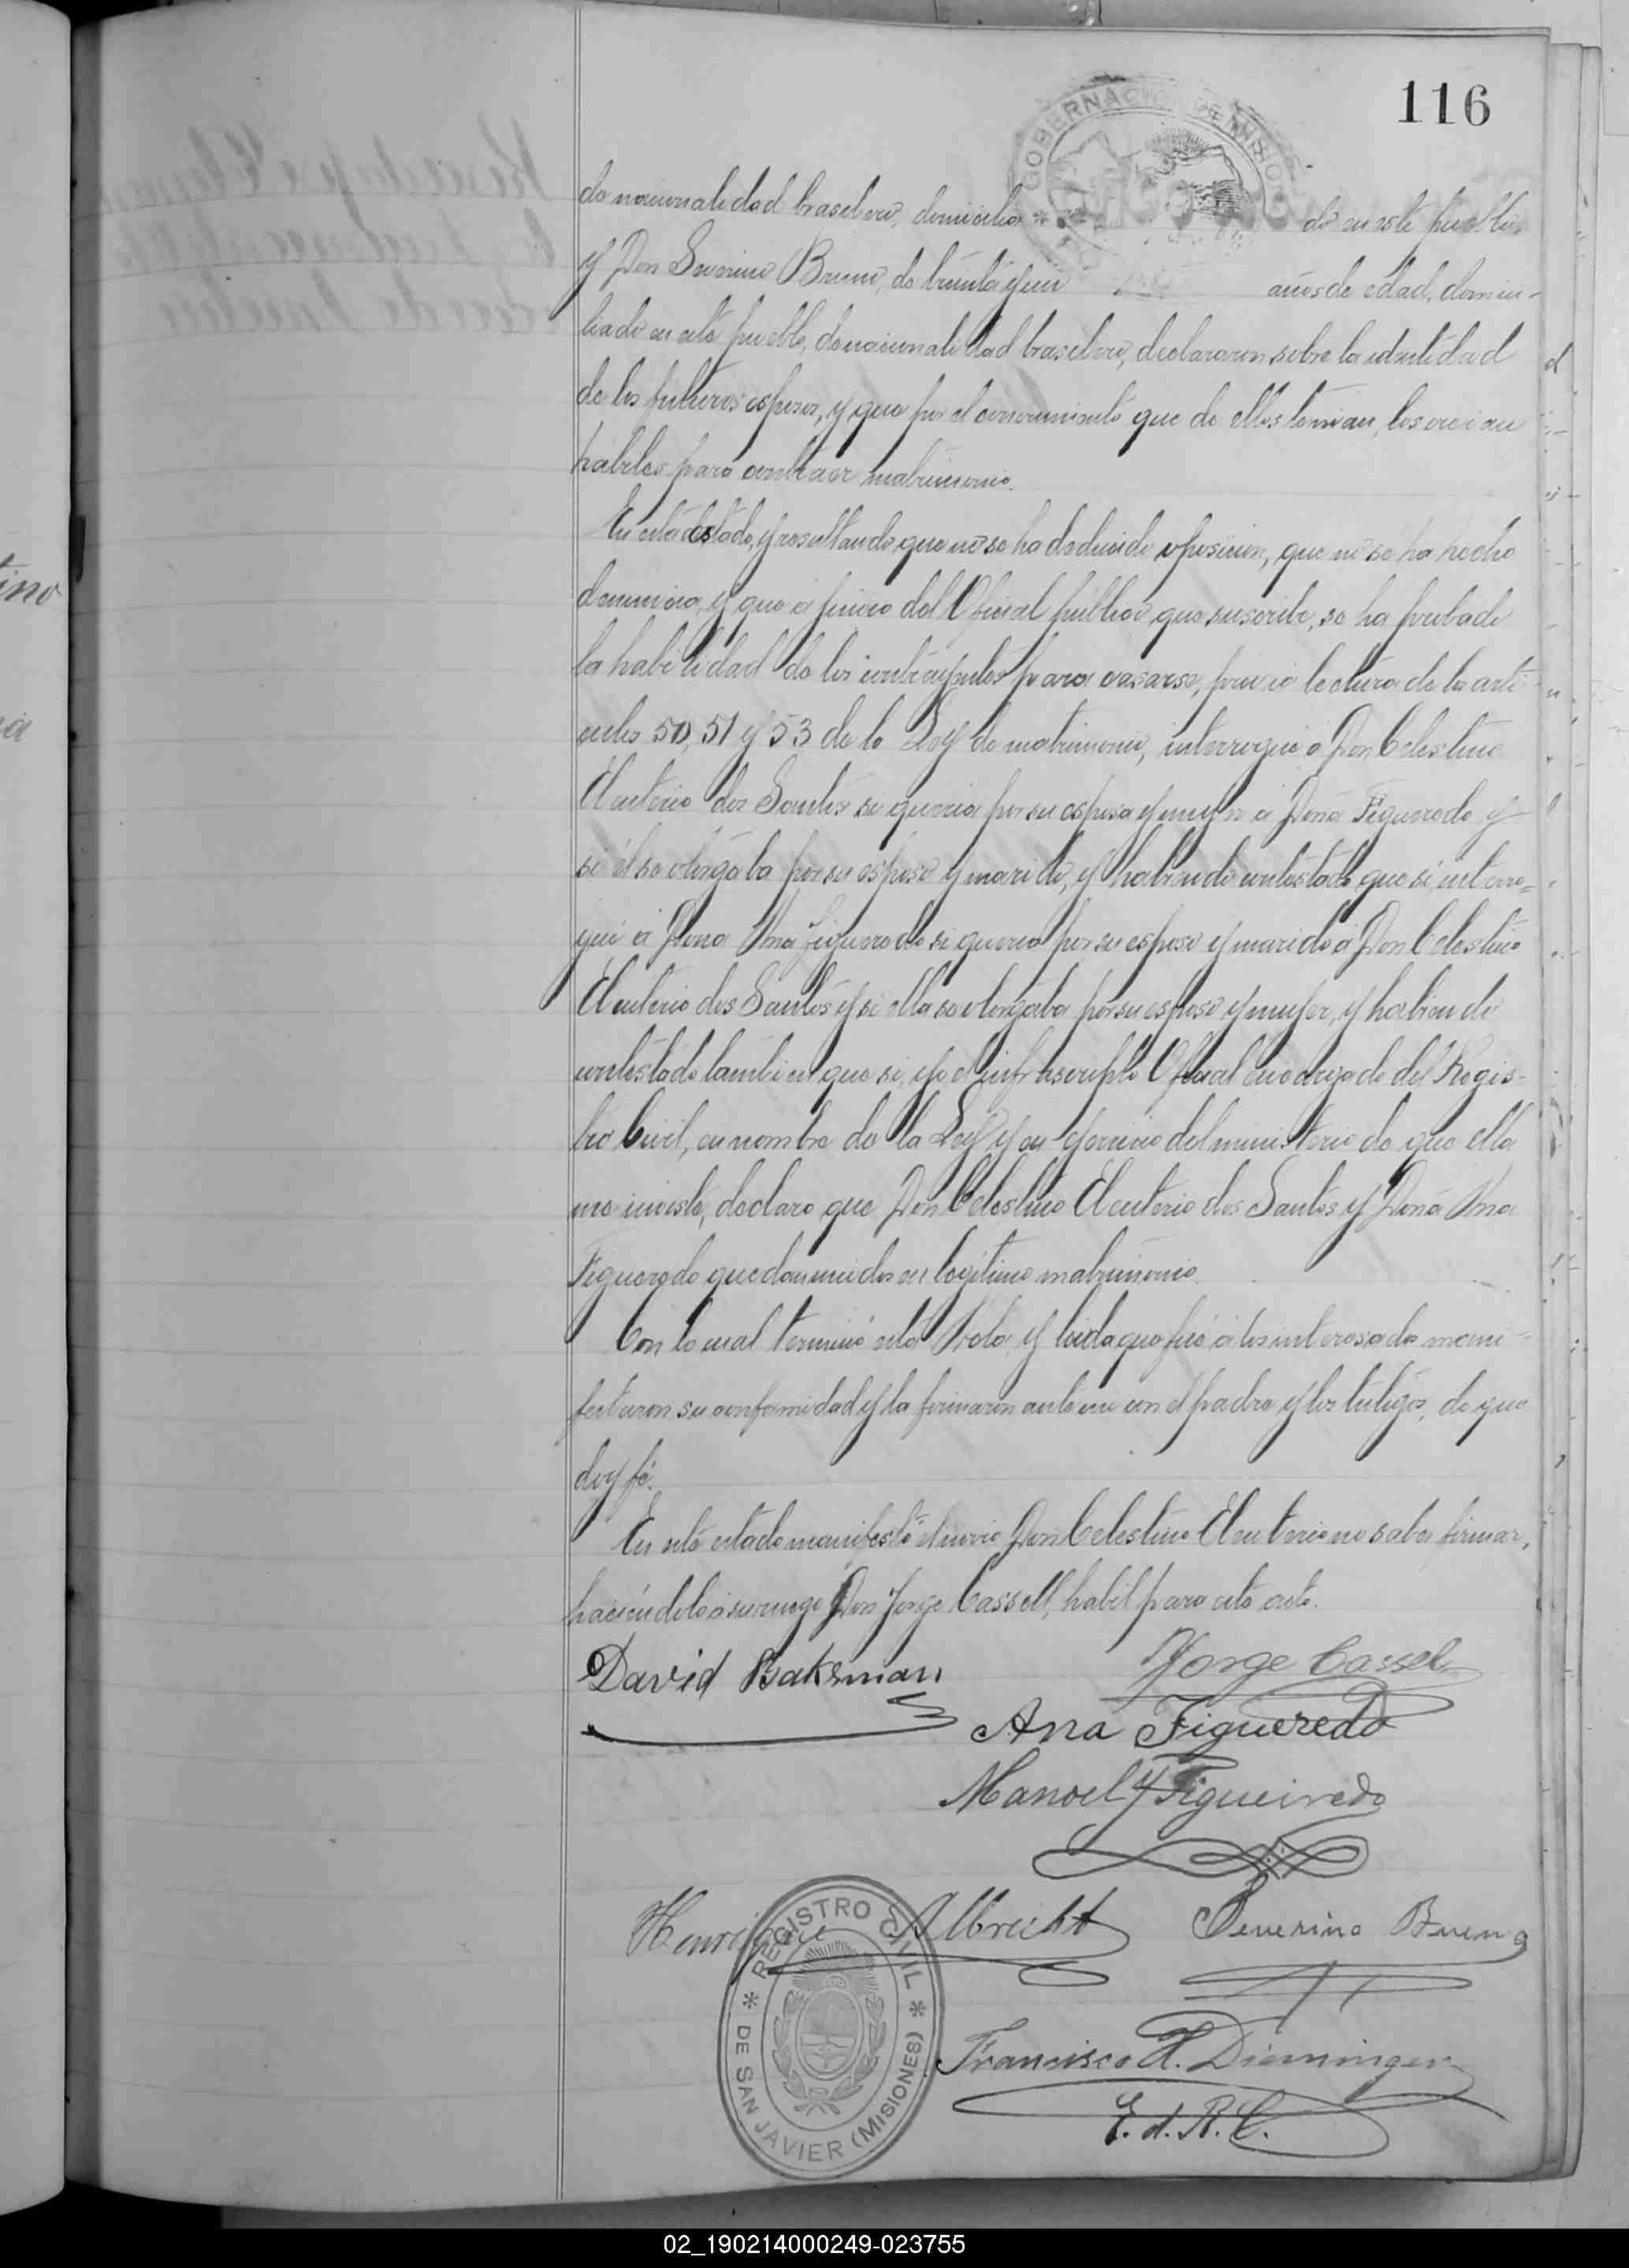 116
GOBERNACION DE MISIONES
de nacionalidad brasilero, domicilia do en este pueblo
y Don Severino Bueno, de treinta y un años de edad, domici-
liado en este pueblo, de nacionalidad brasilero, declararon sobre la identidad
de los futuros esposos, y que por el conocimiento que de ellos tenian, los creian
habiles para contraer matrimonio.
En este estado, y resultando que no se ha deducido oposicion, que no se ha hecho
denuncia, y que a juicio del Oficial público que suscribe, se ha probado
la habilidad de los contrayentes para casarse, previa lectura de los arti-
culos 50, 51 y 53 de la Ley de matrimonio, interrogué a Don Celestino
Eleuterio dos Santos si queria por su esposa y mujer a Doña Figueredo y
si él se otorgaba por su esposo y marido, y habiendo contestado que si, interro=
gué a Doña Ana Figueredo si queria por su esposo y marido a Don Celestino
Eleuterio dos Santos y si ella se otorgaba por su esposa y mujer, y habiendo
contestado tambien que si, yo el infrascripto Oficial encargado del Regis-
tro Civil, en nombre de la Ley y en ejercicio del ministerio de que ella
me inviste, declaro que Don Celestino Eleuterio dos Santos y Doña Ana
Figueredo quedan unidos en legitimo matrimonio.
Con lo cual terminó esta Acta, y leida que fué a los interesados mani-
festaron su conformidad y la firmaron ante mi con el padre y los testigos, de que
doy fé.
En este estado manifestó el novio Don Celestino Eleuterio no saber firmar,
haciéndolo a su ruego Don Jorge Cassell, habil para este acto.
David Baksman Jorge Cassel
Ana Figueredo
Manoel Y Figueiredo
Henrique Albrecht Severino Bueno
REGISTRO CIVIL
DE SAN JAVIER (MISIONES)
Francisco H. Dieminger
E. d. R. C.
02_190214000249-023755